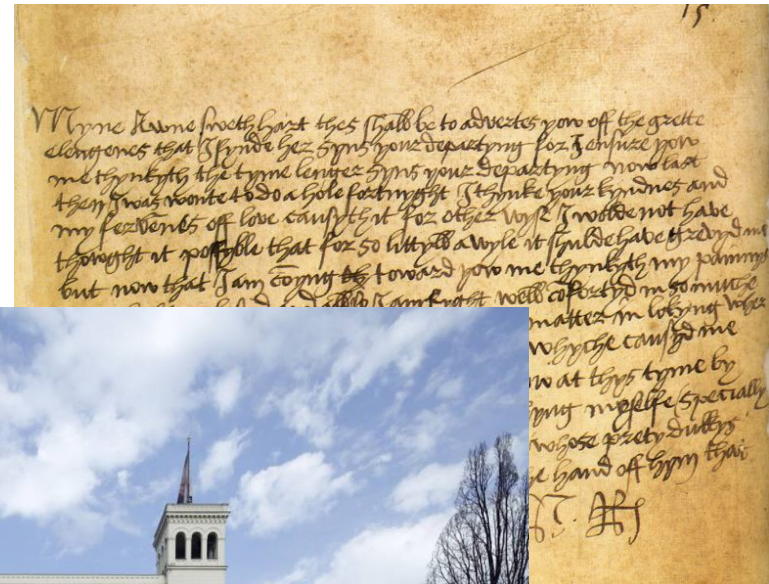 15.
Myne Awne swethhart thes shall be to advertes yow off the grette
elengenes that I fynde her syns your departyng for I ensure yow
me thynkyth the tyme lenger syns your departyng now last
then I was wonte to do a hole fortnyght I thynke your kyndnes and
my fervenes off love causyth it for other wyse I wolde not have
thowght it possyble that for so littyll a wyle it shulde have grevyd me
but now that I am comyng toward yow me thynkyth my paynnys
I am ryght well cofortyd in so muche
matter in lokyng wher
whyche causyd me
at thys tyme by
myselfe specially
whose prety dukkys
hand off hym that